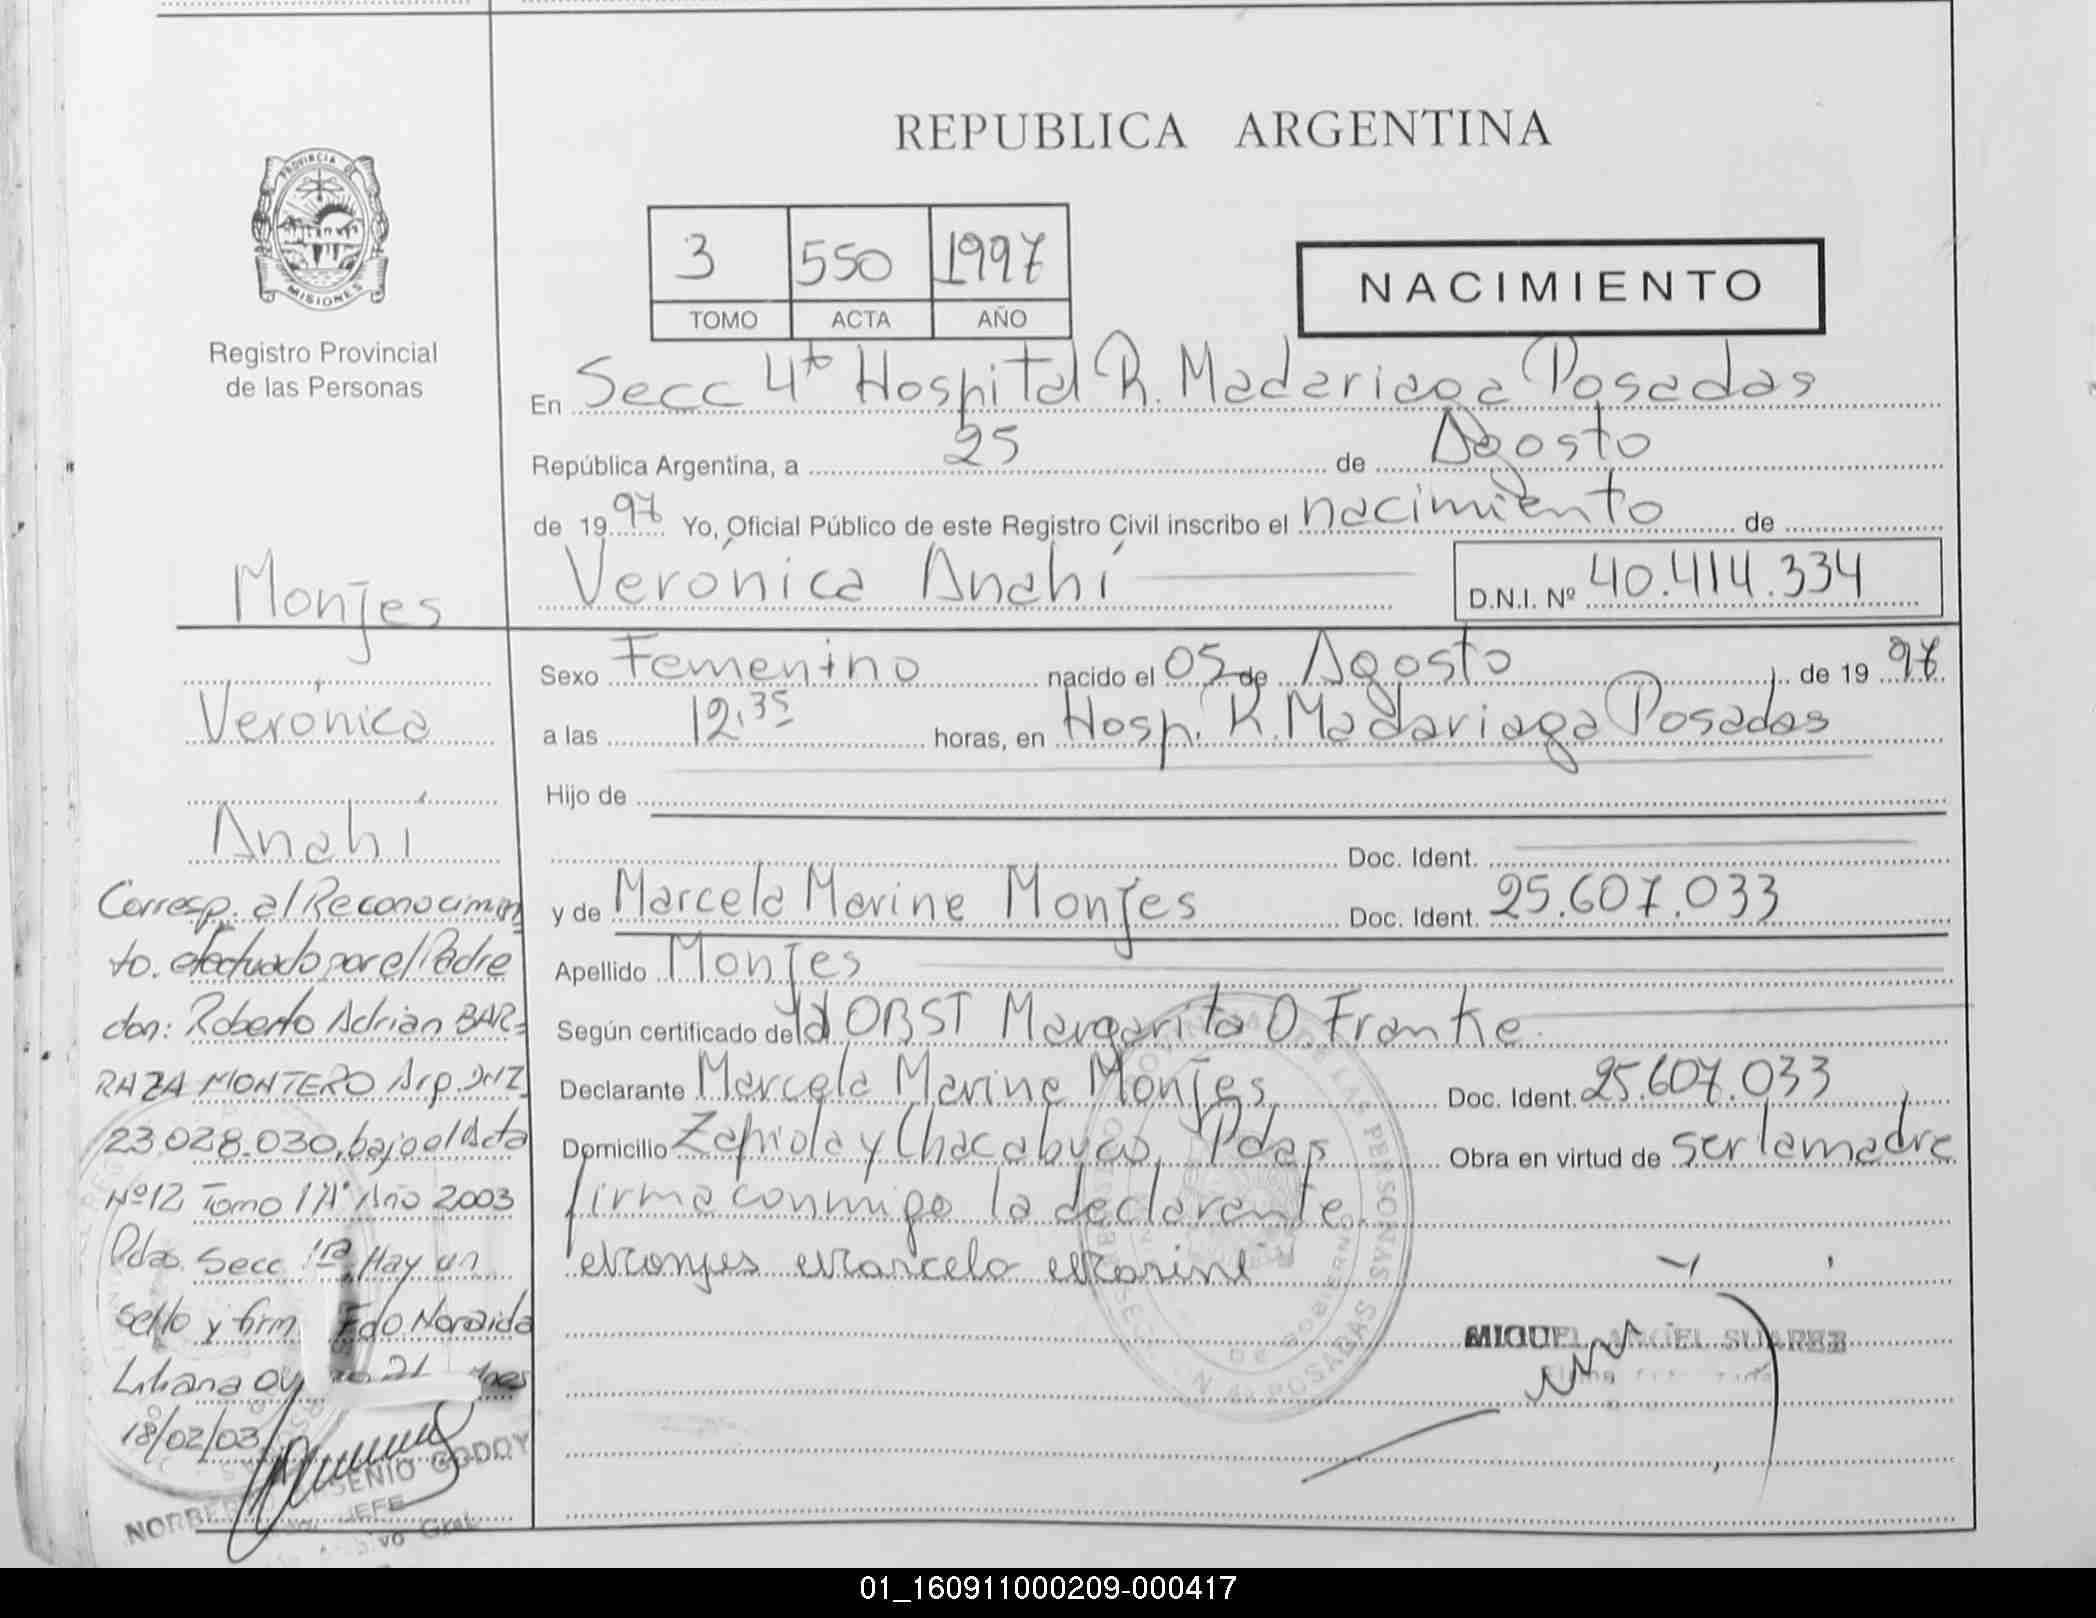 REPUBLICA ARGENTINA
PROVINCIA DE
MISIONES
Registro Provincial
de las Personas
3 550 1997
TOMO ACTA AÑO
NACIMIENTO
En Secc 4ta Hospital R. Madariaga Posadas
República Argentina, a 25 de Agosto
de 1997 Yo, Oficial Público de este Registro Civil inscribo el nacimiento de
Verónica Anahí D.N.I. Nº 40.414.334
Sexo Femenino nacido el 05 de Agosto de 1997
a las 12,35 horas, en Hosp. R. Madariaga Posadas
Hijo de
Doc. Ident.
y de Marcela Marine Monjes Doc. Ident. 25.607.033
Apellido Monjes
Según certificado de la OBST Margarita O. Franke
Declarante Marcela Marine Monjes Doc. Ident. 25.607.033
Domicilio Zapiola y Chacabuco, Pdas Obra en virtud de ser la madre
firma conmigo la declarante
Monjes Marcela Marine
MIGUEL ANGEL SUAREZ
Monjes
Verónica
Anahí
Corresp. al Reconocimien
to. efectuado por el Padre
don: Roberto Adrian BAR=
RAZA MONTERO Arg. DNI
23.028.030, bajo el Acta
Nº 12 Tomo 1 Aº Año 2003
Pdas. Secc 1ra Hay un
sello y firm Fdo Noraida
Liliana
18/02/03
GODOY
JEFE
01_160911000209-000417